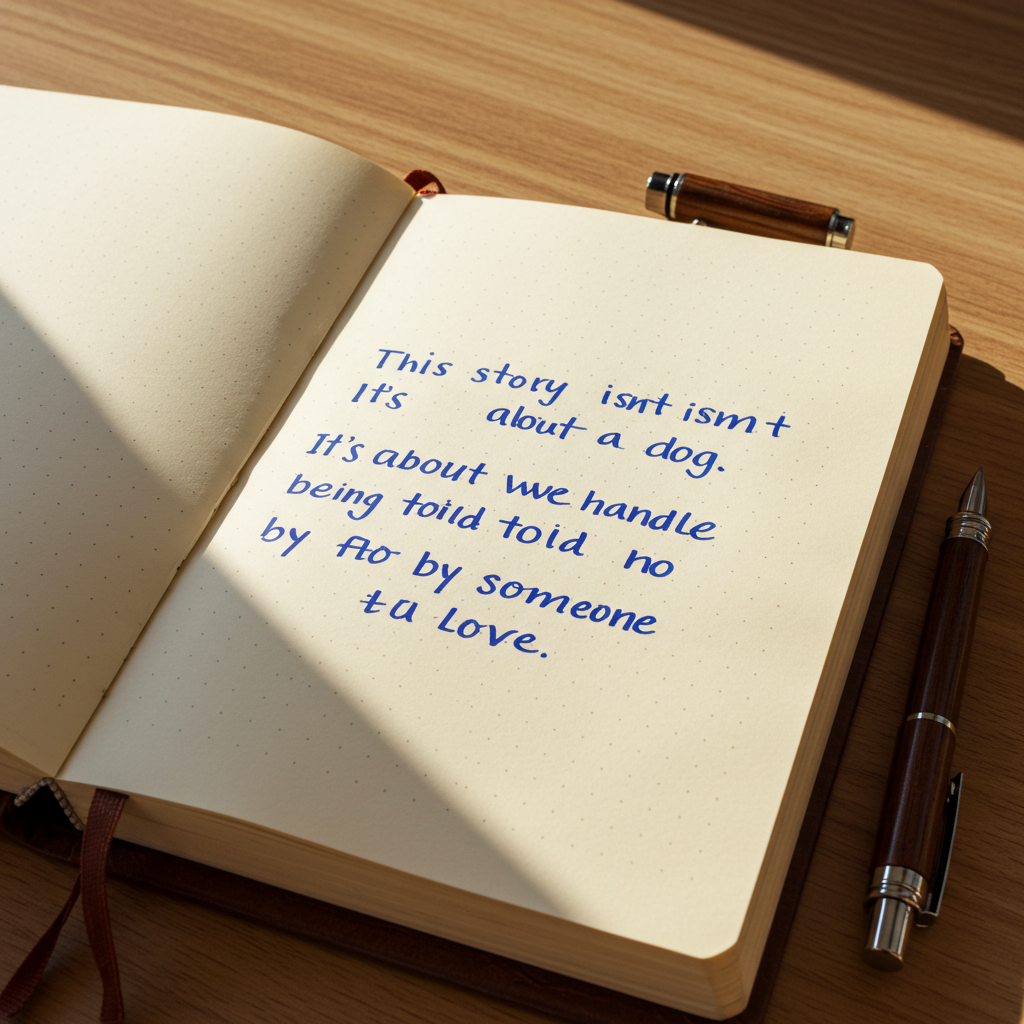 This story isnt ismt
It's about a dog.
It's about we handle
being toild toid no
by by someone
ta Love.